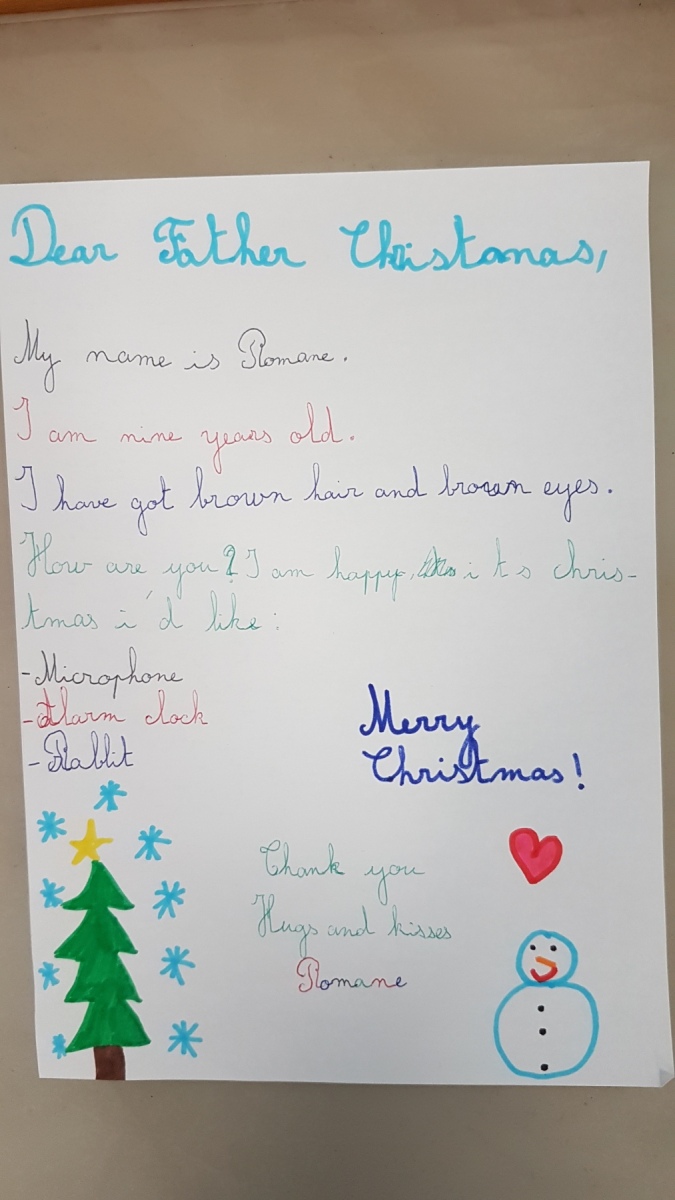 Dear Father Christmas,
My name is Romane.
I am nine years old.
I have got brown hair and brown eyes.
How are you? I am happy, it s chris-
tmas i'd like:
-Microphone
-Alarm clock
-Rabbit
Merry
Christmas!
Thank you
Hugs and kisses
Romane